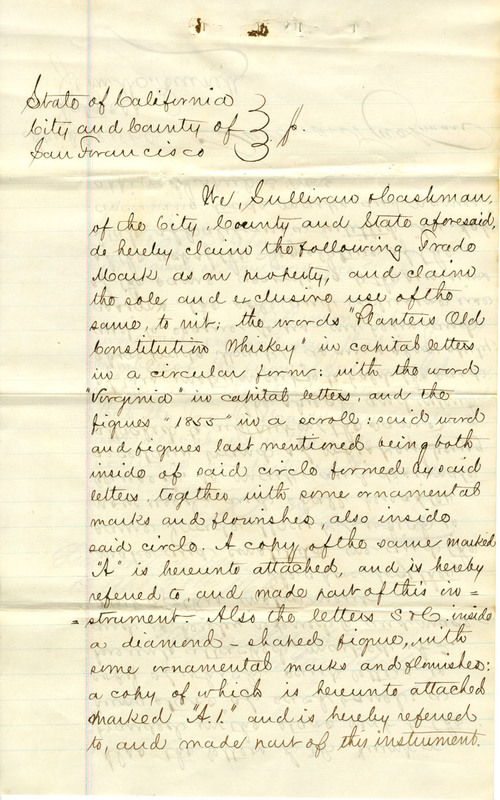 State of California
City and County of
San Francisco
We, Sullivan & Cashman,
of the City, County and State aforesaid,
do hereby claim the following Trade
Mark as our property, and claim
the sole and exclusive use of the
same, to wit; the words "Planters Old
Constitution Whiskey" in capital letters
in a circular form: with the word
"Virginia" in capital letters, and the
figures "1855" in a scroll: said word
and figures last mentioned being both
inside of said circle formed by said
letters, together with some ornamental
marks and flourishes, also inside
said circle. A copy of the same marked
"A" is hereunto attached, and is hereby
refered to, and made part of this in=
=strument. Also the letters S & C. inside
a diamond-shaped figure, with
some ornamental marks and flourishes:
a copy of which is hereunto attached
marked "A.1." and is hereby referred
to, and made part of this instrument.